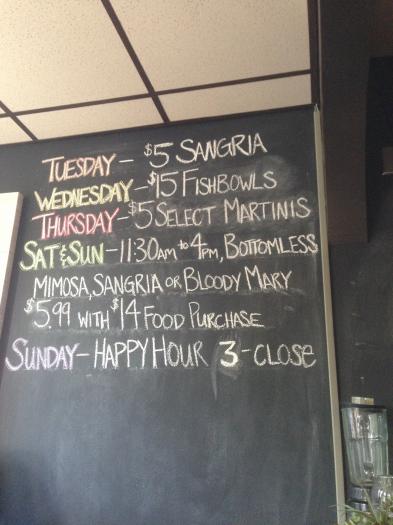 TUESDAY - $5 SANGRIA
WEDNESDAY - $15 FISHBOWLS
THURSDAY - $5 SELECT MARTINIS
SAT & SUN - 11:30AM to 4PM, BOTTOMLESS
MIMOSA, SANGRIA OR BLOODY MARY
$5.99 WITH $14 FOOD PURCHASE
SUNDAY - HAPPY HOUR 3 - CLOSE